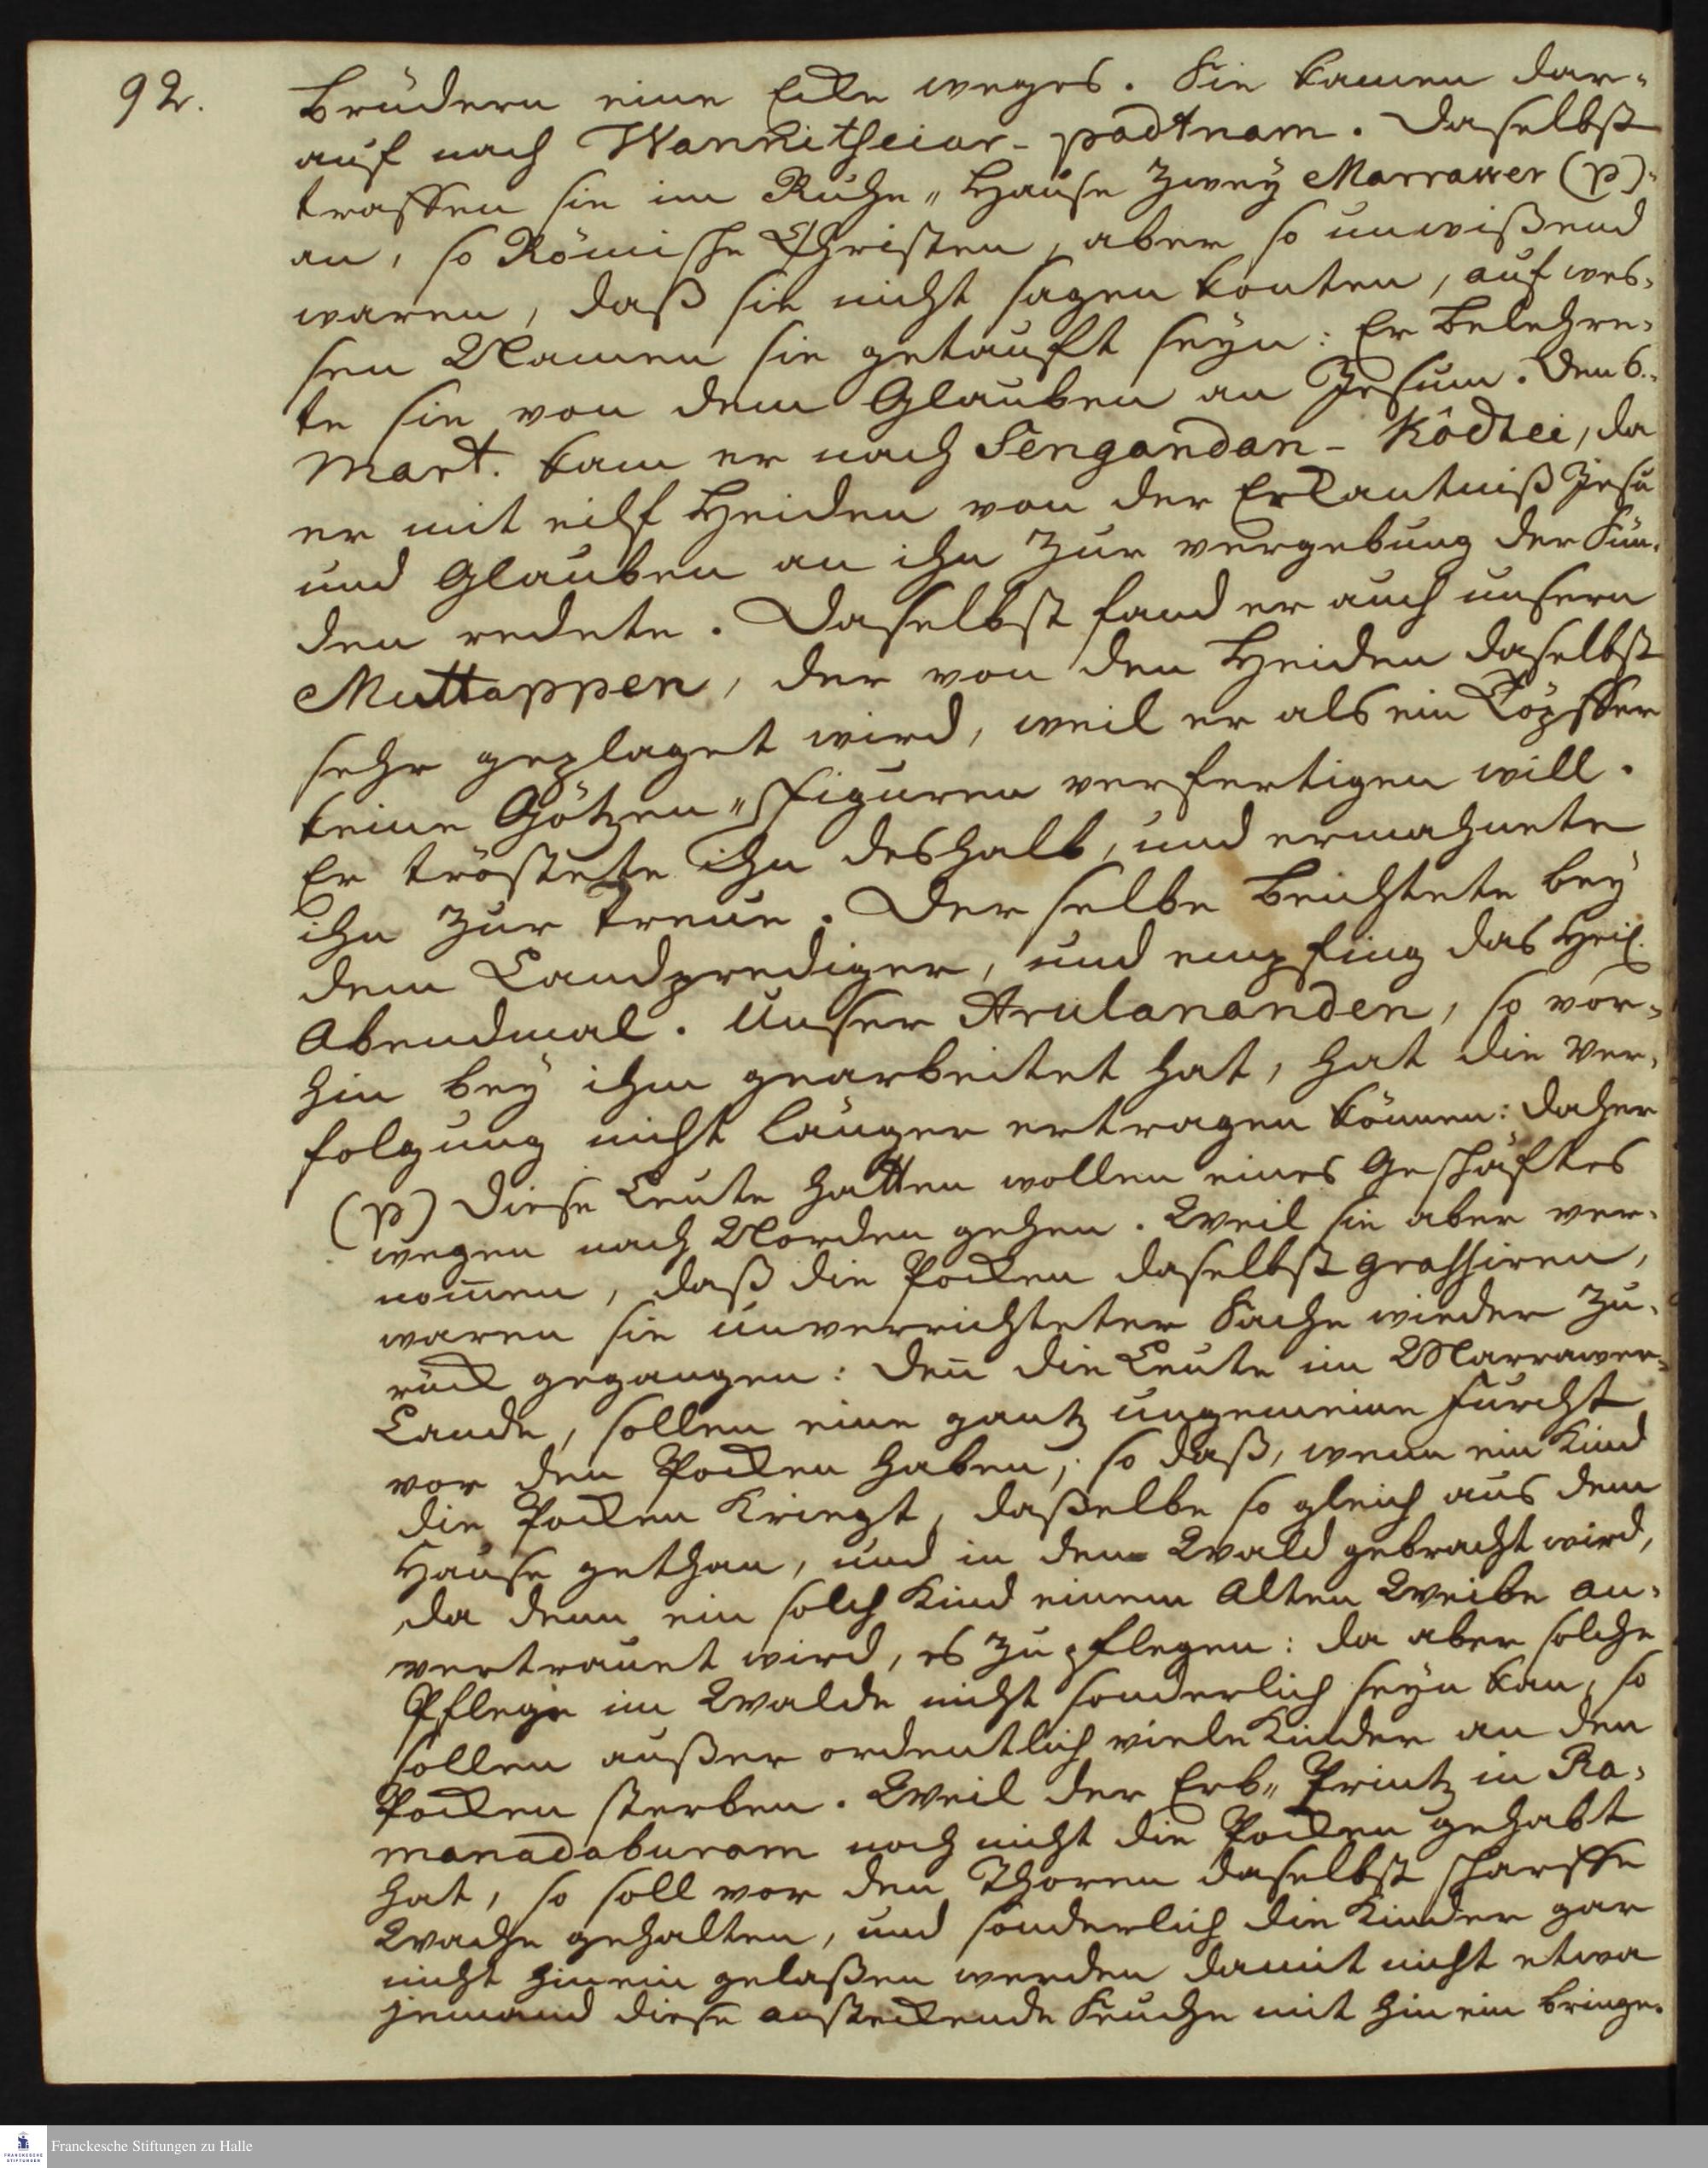 92.
Brüdern eine Ecke weges. Sie kamen dar-
auf nach Wannitheiar-padtnam. Daselbst
traffen sie im Ruhe-Hause zwey Marrawer (p)
an, so Römische Christen, aber so unwißend
waren, daß sie nicht sagen konten, auf wes-
sen Namen sie getauft seyn: Er belehre-
te sie von dem Glauben an Jesum. Den 6.
Mart. kam er nach Sengandan-Kôdtei, da
er mit eilf Heiden von der Erkäntniß Jesu
und Glauben an ihn zur vergebung der Sün-
den redete. Daselbst fand er auch unsern
Muttappen, der von den Heiden daselbst
sehr geplaget wird, weil er als ein Töpffer
keine Götzen-Figuren verfertigen will.
Er tröstete ihn deshalb, und ermahnete
ihn zur Treue. Der selbe beichtete bey
dem Landprediger, und empfing das Heil.
Abendmal. Unser Arulananden, so vor-
hin bey ihm gearbeitet hat, hat die Ver-
folgung nicht länger ertragen können: daher
(p) Diese Leute hatten wollen eines Geschäftes
wegen nach Norden gehen. Weil sie aber ver-
nom̄en, daß die Pocken daselbst grassiren,
waren sie unverrichteter Sache wieder zu-
rück gegangen: den̄ die Leute im Marrawer-
Lande, sollen eine gantz ungemeine Furcht
vor den Pocken haben; so daß, wenn ein Kind
die Pocken kriegt, daßelbe so gleich aus dem
Hause gethan, und in den Wald gebracht wird,
da denn ein solch Kind einem Alten Weibe an-
vertrauet wird, es zu pflegen: da aber solche
Pflege im Walde nicht sonderlich seyn kan, so
sollen außer ordentlich viele Kinder an den
Pocken sterben. Weil der Erb-Printz in Ra-
manadaburam noch nicht die Pocken gehabt
hat, so soll vor den Thoren daselbst scharffe
Wache gehalten, und sonderlich die Kinder gar
nicht hinein gelaßen werden damit nicht etwa
jemand diese ansteckende Seuche mit hin ein bringe.
Franckesche Stiftungen zu Halle